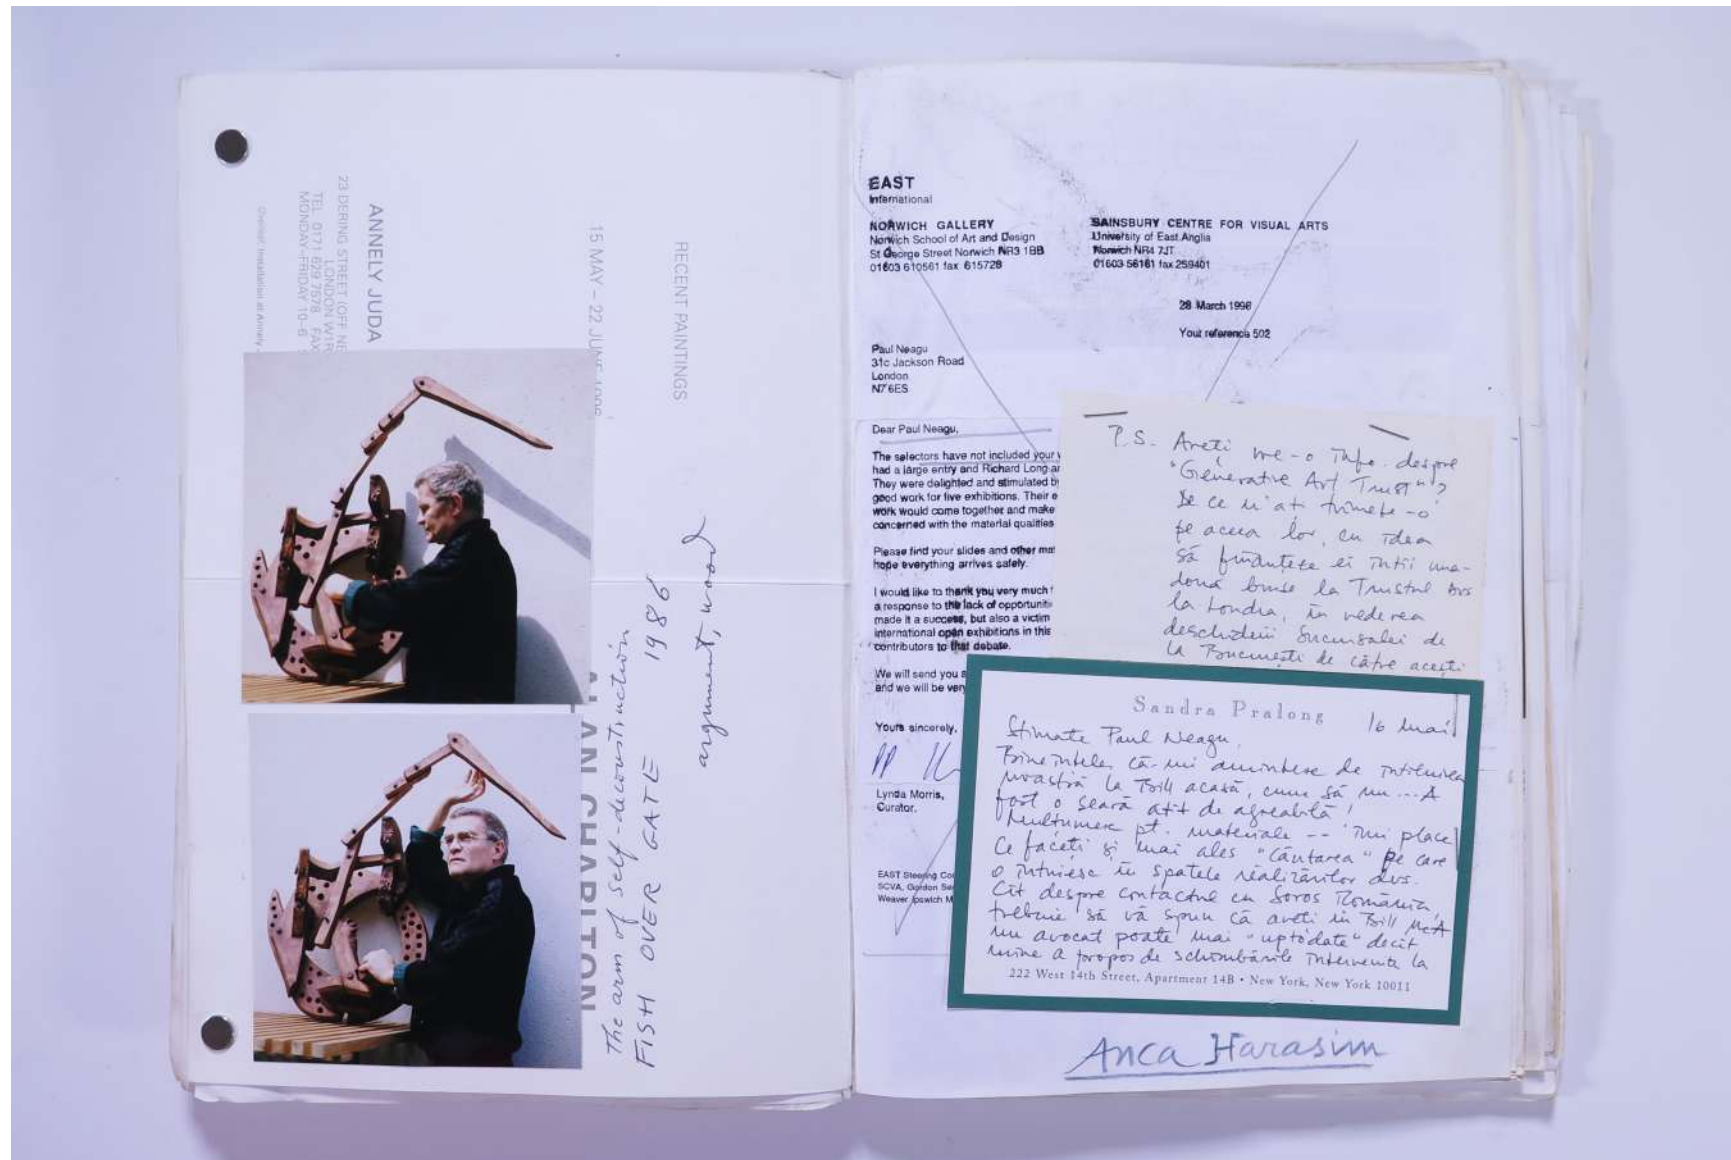 ANNELY JUDA
23 DERING STREET (OFF NE
LONDON W1R
TEL 0171 629 7578 FAX
MONDAY-FRIDAY 10-6
Overleaf: Installation at Annely
15 MAY – 22 JUNE 1996
RECENT PAINTINGS
ALAN CHARLTON
The arm of self-deconstruction
FISH OVER GATE 1986
argument, wood
EAST
International
NORWICH GALLERY
Norwich School of Art and Design
St George Street Norwich NR3 1BB
01603 610561 fax 615728
SAINSBURY CENTRE FOR VISUAL ARTS
University of East Anglia
Norwich NR4 7JT
01603 56161 fax 259401
28 March 1996
Your reference 502
Paul Neagu
31c Jackson Road
London
N7 6ES
Dear Paul Neagu,
The selectors have not included your
had a large entry and Richard Long
They were delighted and stimulated
good work for five exhibitions. Their
work would come together and make
concerned with the material qualities
Please find your slides and other
hope everything arrives safely.
I would like to thank you very much
a response to the lack of
made it a success, but also a victim
international open exhibitions in this
contributors to that debate.
We will send you
and we will be
Yours sincerely,
Lynda Morris,
Curator.
EAST Steering
SCVA, Gordon
Weaver Ipswich M
P.S. Aveți vre-o info. despre
"Generative Art Trust"?
De ce n'ați trimete-o
pe aceea lor, cu idea
să finanțeze ei întîi una-
două burse la Trustul dvs
la Londra, în vederea
deschiderii sucursalei de
la București de către acești
Sandra Pralong
16 mai
Stimate Paul Neagu,
Bineînțeles că-mi amintesc de întîlnirea
noastră la Bill acasă, cum să nu... A
fost o seară atît de agreabilă!
Mulțumesc pt. materiale -- îmi place
ce faceți și mai ales "căutarea" pe care
o intuiesc în spatele realizărilor dvs.
Cît despre contactul cu Soros România,
trebuie să vă spun că aveți în Bill McA
un avocat poate mai "uptodate" decît
mine a propos de schimbările intervenite la
222 West 14th Street, Apartment 14B • New York, New York 10011
Anca Harasim